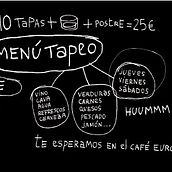 10 TAPAS + + POSTRE = 25€
MENÚ TAPEO
E
VINO
CAVA
AGUA
REFRESCOS
CERVEZA
VERDURAS
CARNES
QUESOS
PESCADO
JAMÓN...
JUEVES
VIERNES
SÁBADOS
HUUMMM
TE ESPERAMOS EN EL CAFÉ EURO